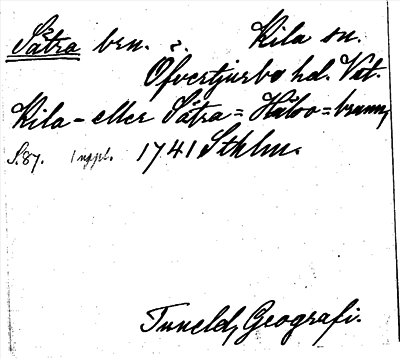 Sätra brn. i. Kila sn.
Öfvertjurbo hd. Vst.
Kila- eller Sätra = Håbo = brunn,
S. 87. 1 uppl. 1741 Sthlm.
Tuneld, Geografi.